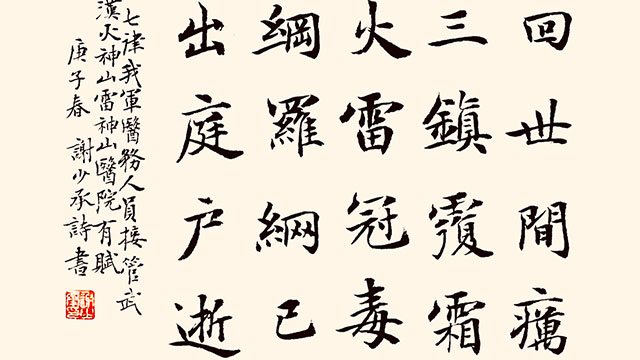 回世間癘
三鎮覆霜
火雷冠毒
綱羅網已
出庭户逝
七律我軍醫務人員接管武
漢火神山雷神山醫院有賦
庚子春 謝少承詩書